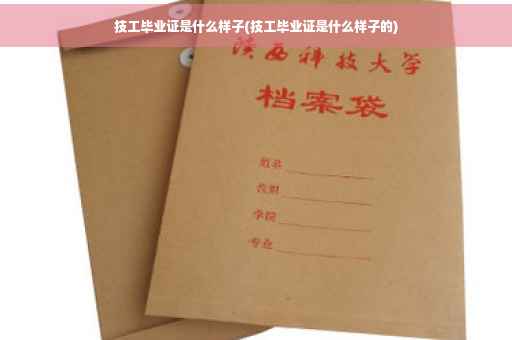 技工毕业证是什么样子(技工毕业证是什么样子的)
陕西科技大学
档案袋
姓名
学院
专业